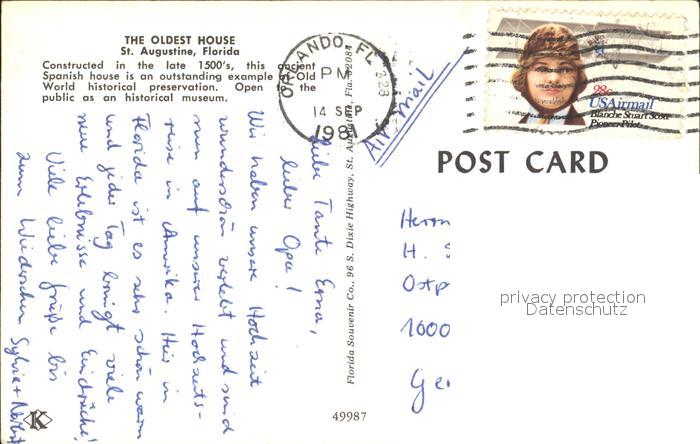 THE OLDEST HOUSE
St. Augustine, Florida
Constructed in the late 1500's, this ancient
Spanish house is an outstanding example of Old
World historical preservation. Open to the
public as an historical museum.
ORLANDO, FL 328
PM
14 SEP
198
Air mail
28c
USAirmail
Blanche Stuart Scott
Pioneer Pilot
POST CARD
Liebe Tante Erna,
lieber Opa!
Wir haben unsere Hochzeit
wunderschön verlebt und sind
nun auf unserer Hochzeits-
reise in Amerika. Hier in
Florida ist es sehr schön warm
und jeder Tag bringt viele
neue Erlebnisse und Eindrücke!
Viele liebe Grüße bis
zum Wiedersehen Sylvia +
Florida Souvenir Co., 96 S. Dixie Highway, St. Augustine, Fla. 32084
Herrn
H.
Ostp
1000
Ge
privacy protection
Datenschutz
K
49987